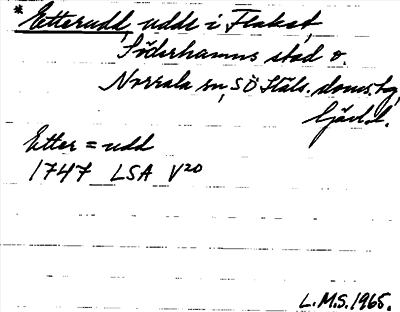 * Etterudd, udde i Flaket,
Söderhamns stad o.
Norrala sn, SÖ Häls. doms.,
Gävl.l.
Etter = udd
1747 LSA V20
L.M.S. 1965.